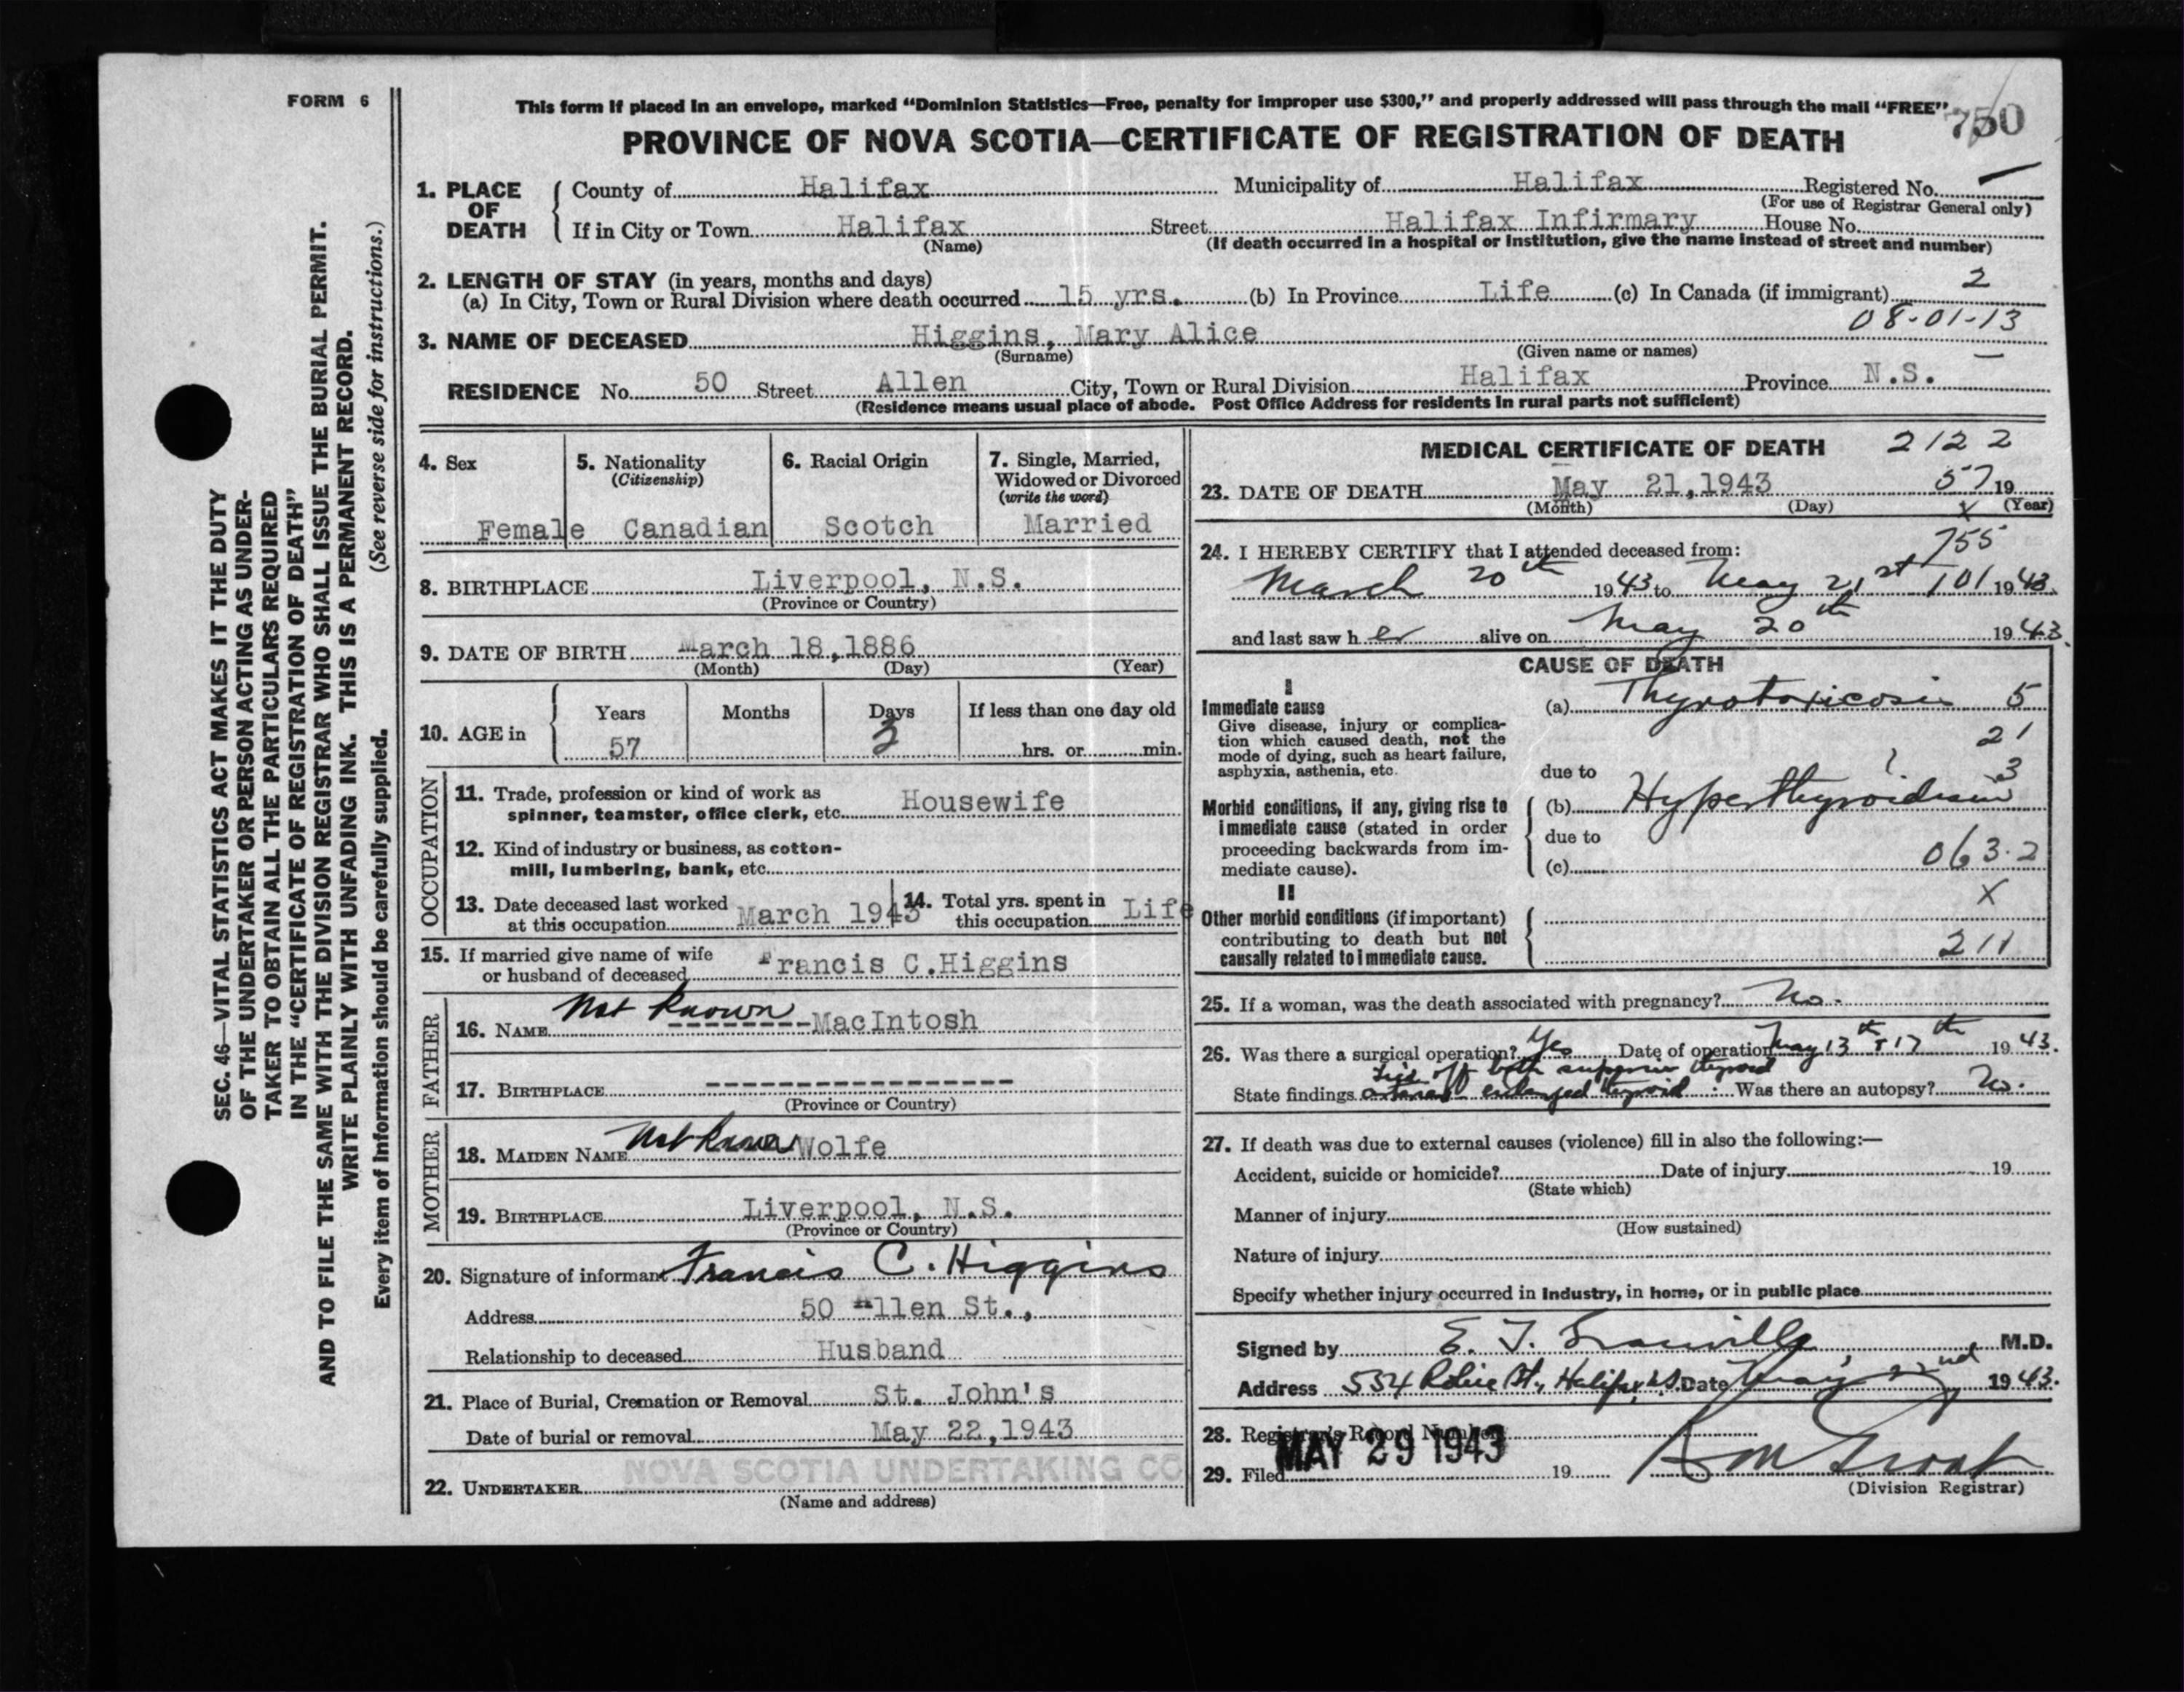 FORM 6
This form if placed in an envelope, marked “Dominion Statistics—Free, penalty for improper use $300,” and properly addressed will pass through the mail “FREE”
750
PROVINCE OF NOVA SCOTIA—CERTIFICATE OF REGISTRATION OF DEATH
1. PLACE OF DEATH
County of Halifax Municipality of Halifax Registered No.
(For use of Registrar General only)
If in City or Town Halifax Street Halifax Infirmary House No.
(Name) (If death occurred in a hospital or institution, give the name instead of street and number)
2. LENGTH OF STAY (in years, months and days) 2
(a) In City, Town or Rural Division where death occurred 15 yrs. (b) In Province Life (c) In Canada (if immigrant)
08-01-13
3. NAME OF DECEASED Higgins, Mary Alice
(Surname) (Given name or names)
RESIDENCE No. 50 Street Allen City, Town or Rural Division Halifax Province N.S.
(Residence means usual place of abode. Post Office Address for residents in rural parts not sufficient)
4. Sex
Female
5. Nationality
(Citizenship)
Canadian
6. Racial Origin
Scotch
7. Single, Married,
Widowed or Divorced
(write the word)
Married
8. BIRTHPLACE Liverpool, N.S.
(Province or Country)
9. DATE OF BIRTH March 18,1886
(Month) (Day) (Year)
10. AGE in
Years Months Days If less than one day old
57 3 hrs. or min.
OCCUPATION
11. Trade, profession or kind of work as
spinner, teamster, office clerk, etc. Housewife
12. Kind of industry or business, as cotton-
mill, lumbering, bank, etc.
13. Date deceased last worked
at this occupation March 1943
14. Total yrs. spent in
this occupation Life
15. If married give name of wife
or husband of deceased Francis C.Higgins
FATHER
Not Known
16. NAME --------MacIntosh
17. BIRTHPLACE ------------------
(Province or Country)
MOTHER
18. MAIDEN NAME Not Known Wolfe
19. BIRTHPLACE Liverpool, N.S.
(Province or Country)
20. Signature of informant Francis C. Higgins
Address 50 Allen St.,
Relationship to deceased Husband
21. Place of Burial, Cremation or Removal St. John's
Date of burial or removal May 22,1943
NOVA SCOTIA UNDERTAKING CO
22. UNDERTAKER
(Name and address)
MEDICAL CERTIFICATE OF DEATH 2122
23. DATE OF DEATH May 21,1943 57 19
(Month) (Day) x (Year)
24. I HEREBY CERTIFY that I attended deceased from: 755
March 20th 1943 to May 21st 101 1943.
and last saw her alive on May 20th 1943.
CAUSE OF DEATH
I
Immediate cause
Give disease, injury or complica-
tion which caused death, not the
mode of dying, such as heart failure,
asphyxia, asthenia, etc.
(a) Thyrotoxicosis 5
21
due to 3
Morbid conditions, if any, giving rise to
immediate cause (stated in order
proceeding backwards from im-
mediate cause).
(b) Hyperthyroidism
due to
(c) 063.2
II x
Other morbid conditions (if important)
contributing to death but not
causally related to immediate cause.
211
25. If a woman, was the death associated with pregnancy? No.
26. Was there a surgical operation? Yes Date of operation May 13th & 17th 1943.
off both superior thyroid
State findings enlarged thyroid. Was there an autopsy? No.
27. If death was due to external causes (violence) fill in also the following:—
Accident, suicide or homicide? Date of injury 19
(State which)
Manner of injury
(How sustained)
Nature of injury
Specify whether injury occurred in industry, in home, or in public place
Signed by E. T. Granville M.D.
Address 554 Robie St., Halifax N.S. Date May 22nd 1943.
28. Registrar's Record Number
MAY 29 1943
29. Filed 19
(Division Registrar)
SEC. 46—VITAL STATISTICS ACT MAKES IT THE DUTY
OF THE UNDERTAKER OR PERSON ACTING AS UNDER-
TAKER TO OBTAIN ALL THE PARTICULARS REQUIRED
IN THE “CERTIFICATE OF REGISTRATION OF DEATH”
AND TO FILE THE SAME WITH THE DIVISION REGISTRAR WHO SHALL ISSUE THE BURIAL PERMIT.
WRITE PLAINLY WITH UNFADING INK. THIS IS A PERMANENT RECORD.
Every item of information should be carefully supplied. (See reverse side for instructions.)